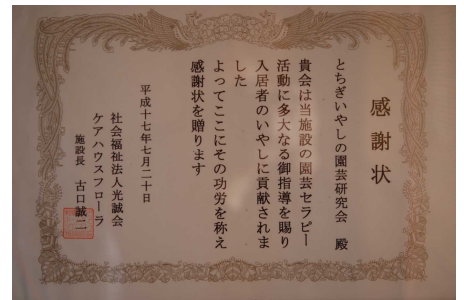 感謝状
とちぎいやしの園芸研究会　殿
貴会は当施設の園芸セラピー
活動に多大なる御指導を賜り
入居者のいやしに貢献されま
した
よってここにその功労を称え
感謝状を贈ります
平成十七年七月二十日
社会福祉法人光誠会
ケアハウスフローラ
施設長　古口誠二